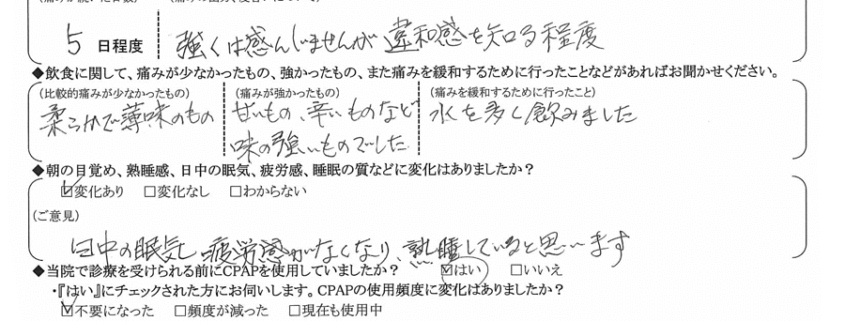 5 日程度 強くは感んじませんが違和感を知る程度
◆飲食に関して、痛みが少なかったもの、強かったもの、また痛みを緩和するために行ったことなどがあればお聞かせください。
(比較的痛みが少なかったもの) (痛みが強かったもの) (痛みを緩和するために行ったこと)
柔らかで薄味のもの 甘いもの、辛いものなど 水を多く飲みました
味の強いものでした
◆朝の目覚め、熟睡感、日中の眠気、疲労感、睡眠の質などに変化はありましたか？
☑変化あり □変化なし □わからない
(ご意見)
日中の眠気し 疲労感がなくなり、熟睡していると思います
◆当院で診療を受けられる前にCPAPを使用していましたか？ ☑はい □いいえ
・『はい』にチェックされた方にお伺いします。CPAPの使用頻度に変化はありましたか？
☑不要になった □頻度が減った □現在も使用中